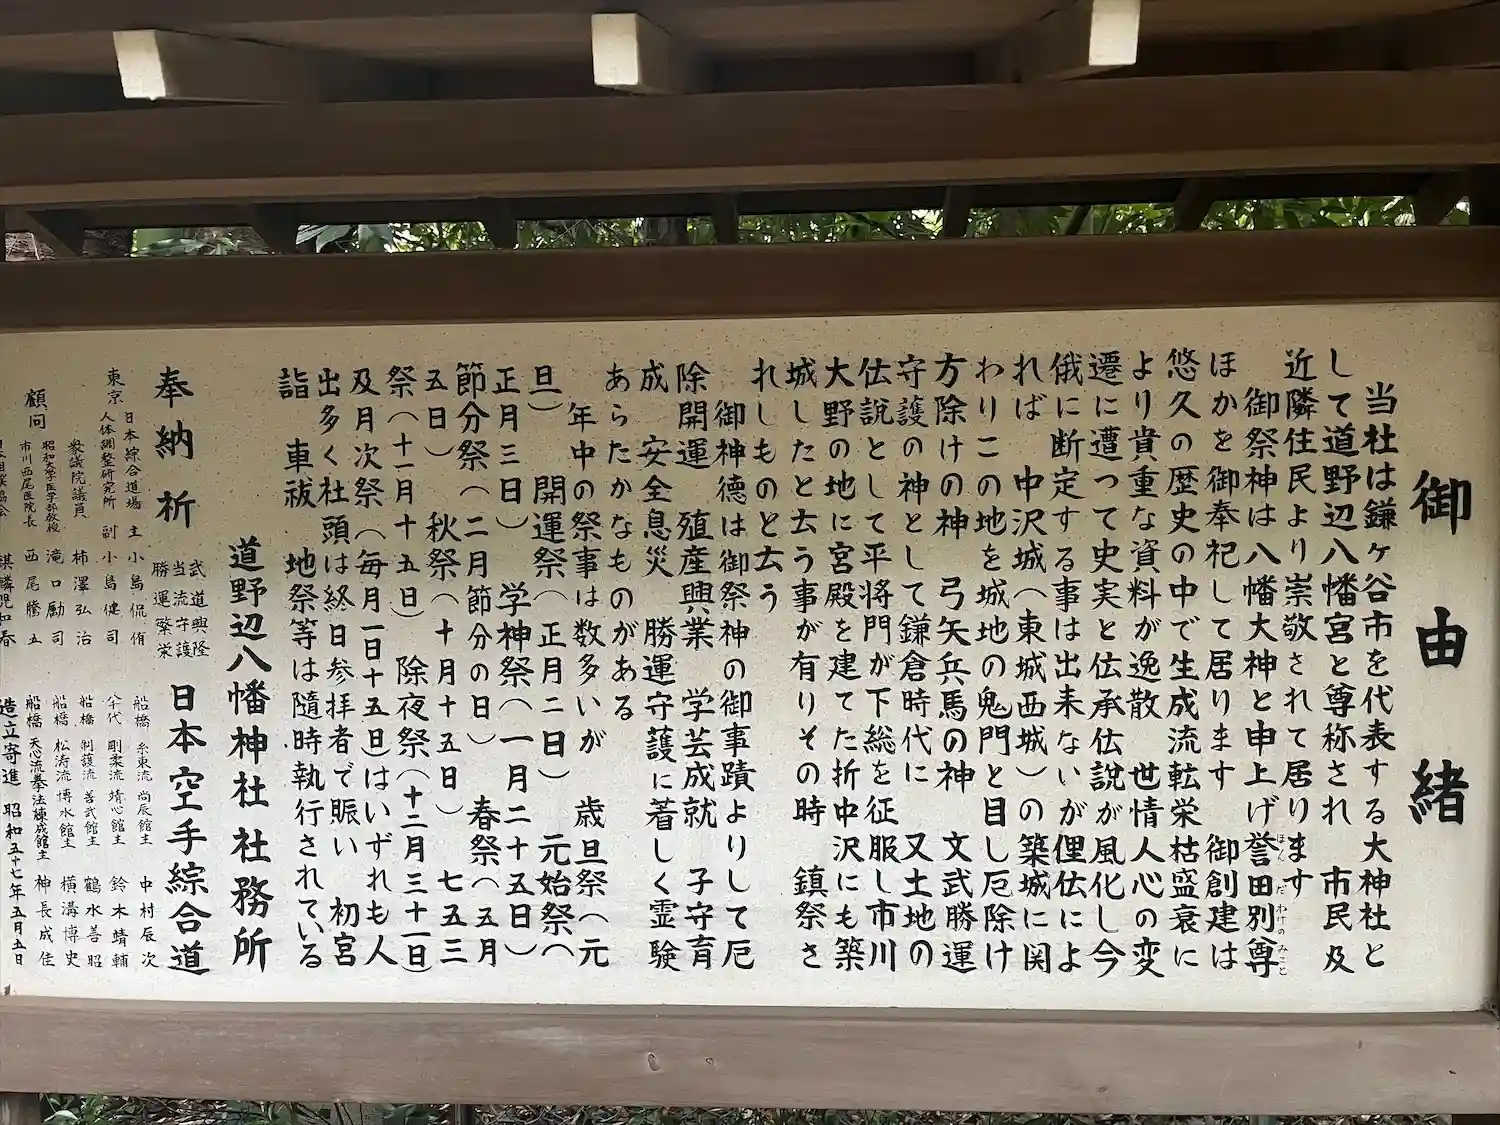 御由緒
当社は鎌ヶ谷市を代表する大神社と
して道野辺八幡宮と尊称され 市民及
近隣住民より崇敬されて居ります
御祭神は八幡大神と申上げ誉田別尊
ほんだわけのみこと
ほかを御奉祀して居ります 御創建は
悠久の歴史の中で生成流転栄枯盛衰に
より貴重な資料が逸散 世情人心の変
遷に遭って史実と伝承伝説が風化し今
俄に断定する事は出来ないが俚伝によ
れば 中沢城(東城西城)の築城に関
わりこの地を城地の鬼門と目し厄除け
方除けの神 弓矢兵馬の神 文武勝運
守護の神として鎌倉時代に 又土地の
伝説として平将門が下総を征服し市川
大野の地に宮殿を建てた折中沢にも築
城したと云う事が有りその時 鎮祭さ
れしものと云う
御神徳は御祭神の御事蹟よりして厄
除開運 殖産興業 学芸成就 子守育
成 安全息災 勝運守護に著しく霊験
あらたかなものがある
年中の祭事は数多いが 歳旦祭(元
旦) 開運祭(正月二日) 元始祭(
正月三日) 学神祭(一月二十五日)
節分祭(二月節分の日) 春祭(五月
五日) 秋祭(十月十五日) 七五三
祭(十一月十五日) 除夜祭(十二月三十一日)
及月次祭(毎月一日十五日)はいずれも人
出多く社頭は終日参拝者で賑い 初宮
詣 車祓 地祭等は随時執行されている
道野辺八幡神社社務所
奉納 祈
武道興隆
当流守護
勝運繁栄
日本空手綜合道
東京 日本綜合道場 主 小島侃侑
人体調整研究所 副 小島健司
衆議院議員 柿澤弘治
顧問 昭和大学医学部教授 滝口勵司
市川西尾医院長 西尾騰五
船橋 糸東流 尚辰館主 中村辰次
八千代 剛柔流 靖心館主 鈴木靖輔
船橋 制護流 善武館主 鶴水善昭
船橋 松涛流 博水館主 横溝博史
船橋 天心流拳法練成館主 神長成佳
造立寄進 昭和五十七年五月五日